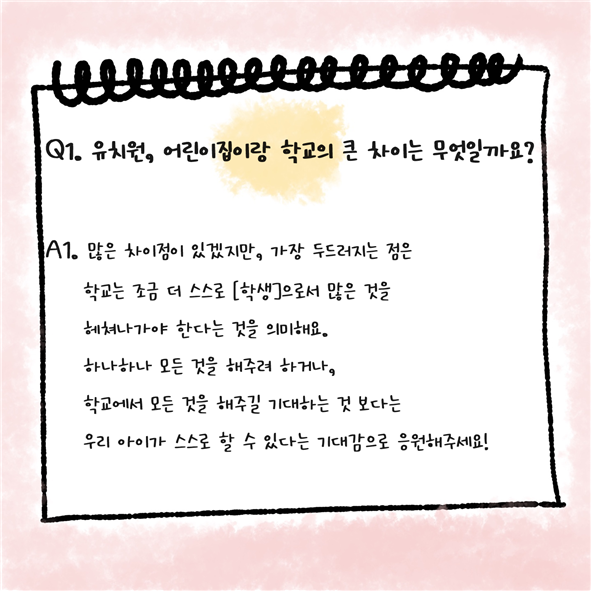 Q1. 유치원, 어린이집이랑 학교의 큰 차이는 무엇일까요?
A1. 많은 차이점이 있겠지만, 가장 두드러지는 점은
학교는 조금 더 스스로 [학생]으로서 많은 것을
헤쳐나가야 한다는 것을 의미해요.
하나하나 모든 것을 해주려 하거나,
학교에서 모든 것을 해주길 기대하는 것 보다는
우리 아이가 스스로 할 수 있다는 기대감으로 응원해주세요!